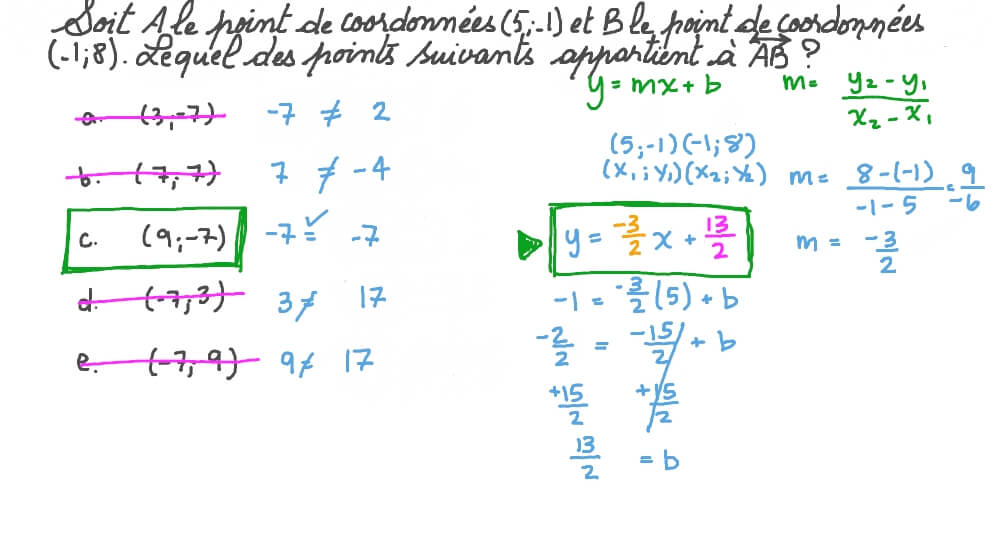 Soit A le point de coordonnées (5;-1) et B le point de coordonnées
(-1;8). Lequel des points suivants appartient à \overleftrightarrow{AB} ?
y = mx + b
m= \frac{y2 - y1}{x2 - x1}
a. (3;-7) -7 ≠ 2
b. (7;7) 7 ≠ -4
c. (9;-7) -7 = -7 ✓
d. (-7;3) 3 ≠ 17
e. (-7;9) 9 ≠ 17
(5;-1)(-1;8)
(x1;y1)(x2;y2)
m= \frac{8-(-1)}{-1-5} = \frac{9}{-6}
y = \frac{-3}{2} x + \frac{13}{2}
m = \frac{-3}{2}
-1 = -\frac{3}{2}(5) + b
\frac{-2}{2} = \frac{-15}{2} + b
\frac{+15}{2} \frac{+15}{2}
\frac{13}{2} = b